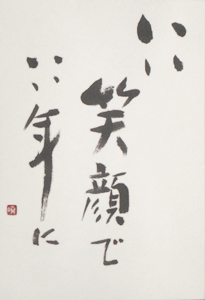 いい笑顔で
いい年に